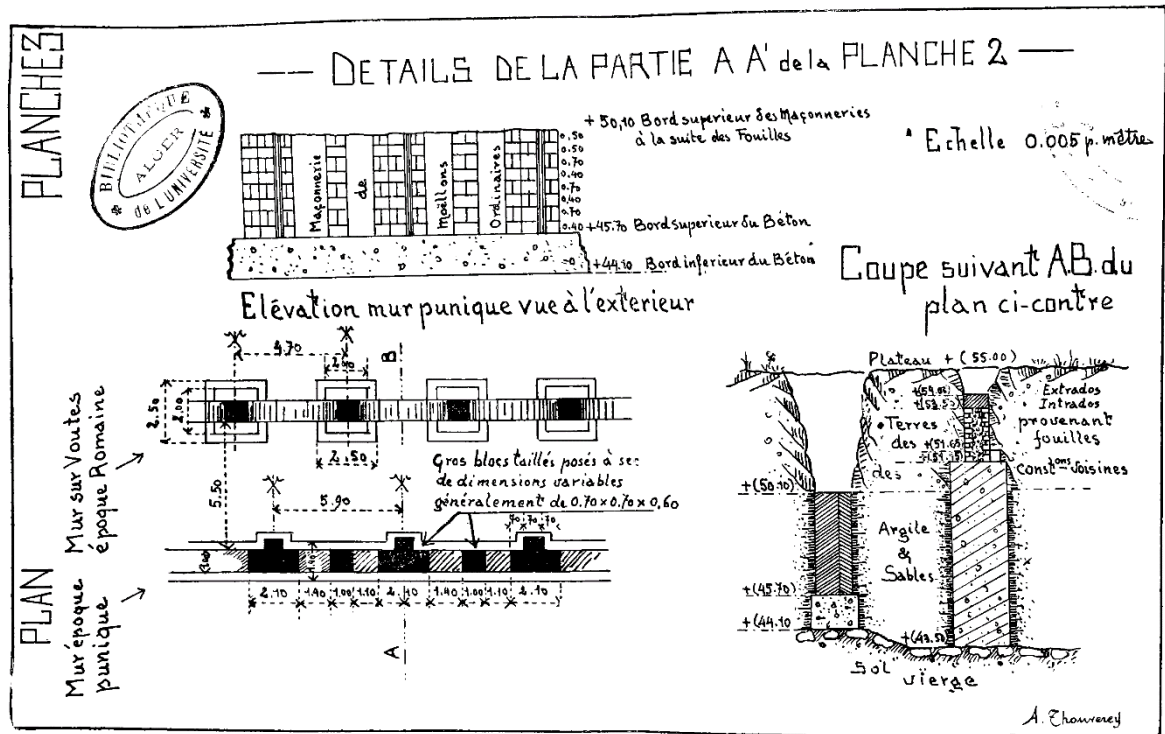 PLANCHE 3
— DETAILS DE LA PARTIE A A' de la PLANCHE 2 —
BIBLIOTHÈQUE
ALGER
* de L'UNIVERSITÉ *
+ 50,10 Bord superieur des Maçonneries
à la suite des Fouilles
Echelle 0.005 p. mètre
0.50
0.50
0.70
0.40
0.70
0.40
0.70
0.40
Maçonnerie
de
Moëllons
Ordinaires
+45.70 Bord superieur du Béton
+44.10 Bord inferieur du Béton
Elévation mur punique vue à l'exterieur
Coupe suivant A.B. du
plan ci-contre
PLAN
Mur sur Voutes
époque Romaine
Mur époque
punique
4.70
B
2,50
2.00
2.50
5.50
5.90
Gros blocs taillés posés à sec
de dimensions variables
généralement de 0.70×0.70×0,60
70 70 70
2.10 1.40 1.00 1.10 2.10 1.40 1.00 1.10 2.10
A
Plateau + (55.00)
Extrados
+(53.50) Intrados
Terres provenant
des fouilles
des Const.ions voisines
+(50.10)
Argile
&
Sables
+(45.70)
+(44.10
+(43.50
Sol vierge
A. Thouverey